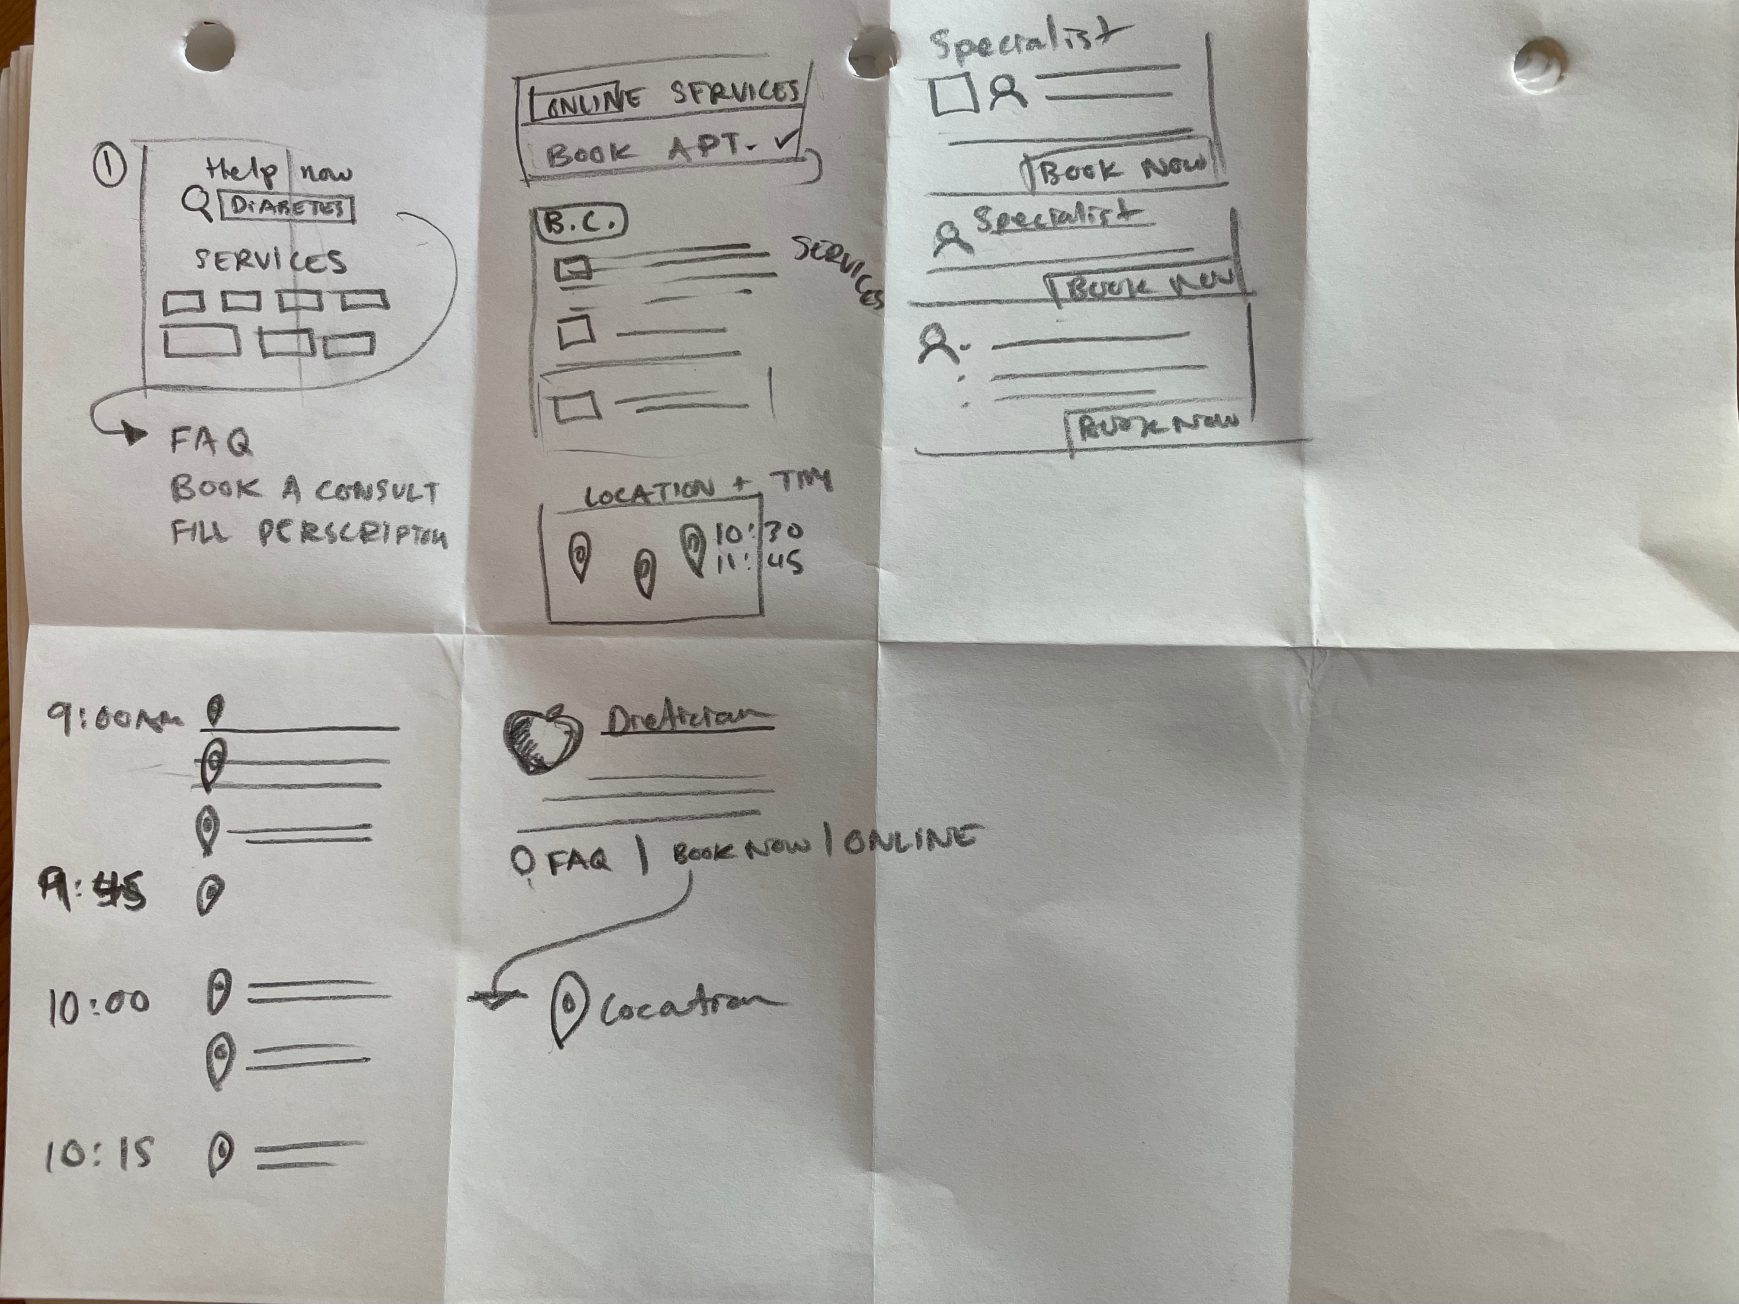 1
Help now
DIABETES
SERVICES
FAQ
BOOK A CONSULT
FILL PERSCRIPTON
ONLINE SERVICES
BOOK APT.
B.C.
SERVICES
LOCATION +
10:30
11:45
Specialist
BOOK NOW
Specialist
BOOK NOW
BOOK NOW
9:00AM
:45
10:00
10:15
Dietician
FAQ | BOOK NOW | ONLINE
Location